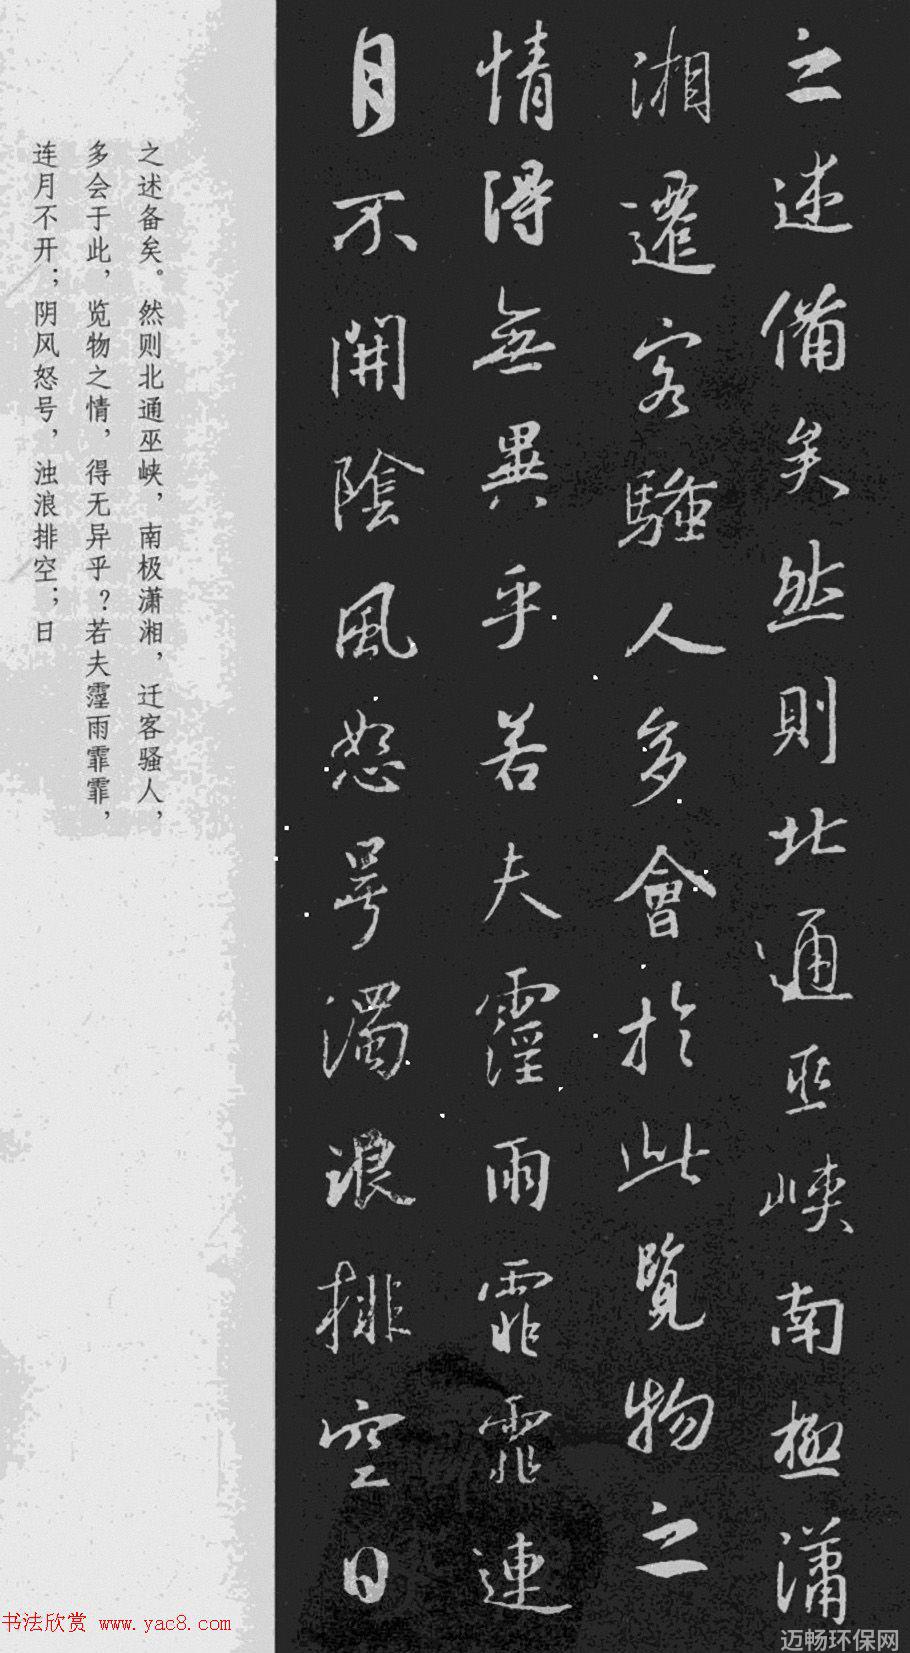 之述備矣然則北通巫峽南極瀟
湘遷客騷人多會於此覽物之
情得無異乎若夫霪雨霏霏連
月不開陰風怒号濁浪排空日
之述备矣。然则北通巫峡，南极潇湘，迁客骚人，
多会于此，览物之情，得无异乎？若夫霪雨霏霏，
连月不开；阴风怒号，浊浪排空；日
书法欣赏 www.yac8.com
迈畅环保网